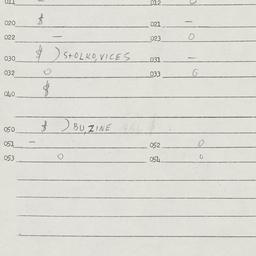 011 — 012 0
020 $ 021 —
022 — 023 0
030 $ ) STOLKO, VICES 031 —
032 0 033 0
040 $
050 $ ) BU, ZINE
051 — 052 0
053 0 054 0